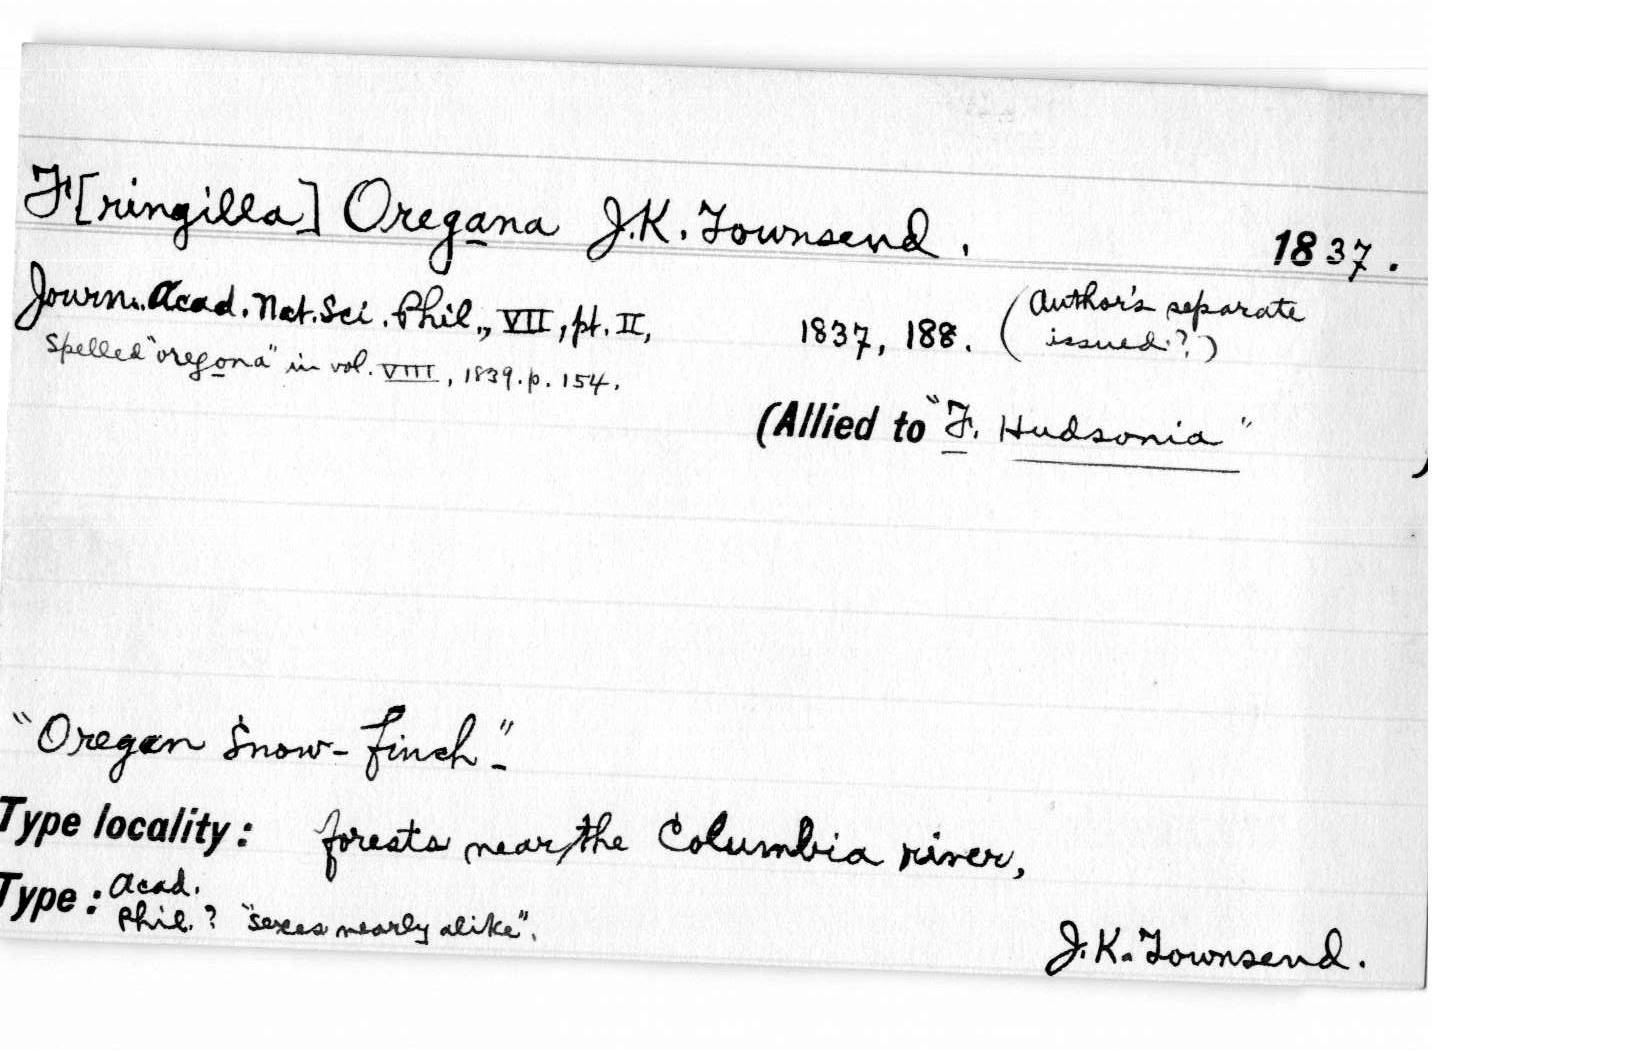 F[ringilla] Oregana J.K. Townsend. 1837.
Journ. Acad. Nat. Sci. Phil., VII, pt. II, 1837, 188. (Author's separate
issued?)
Spelled "oregona" in vol. VIII, 1839. p. 154.
(Allied to "F. Hudsonia" )
"Oregan Snow-Finch".
Type locality: forests near the Columbia river,
Type: Acad.
Phil.? "sexes nearly alike".
J.K. Townsend.